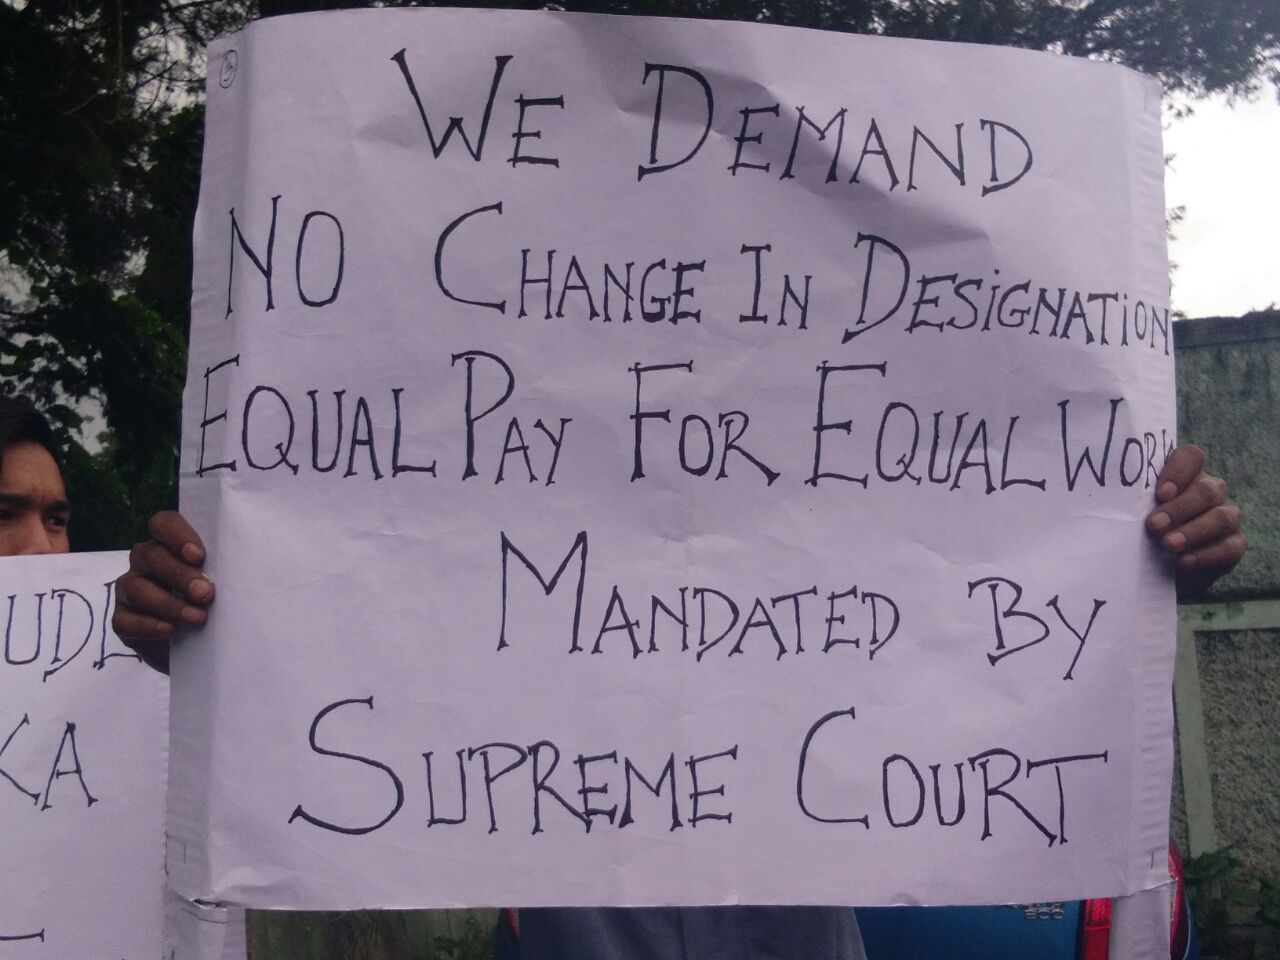 We Demand
No Change In Designation
Equal Pay For Equal Work
Mandated By
Supreme Court
UDL
KA